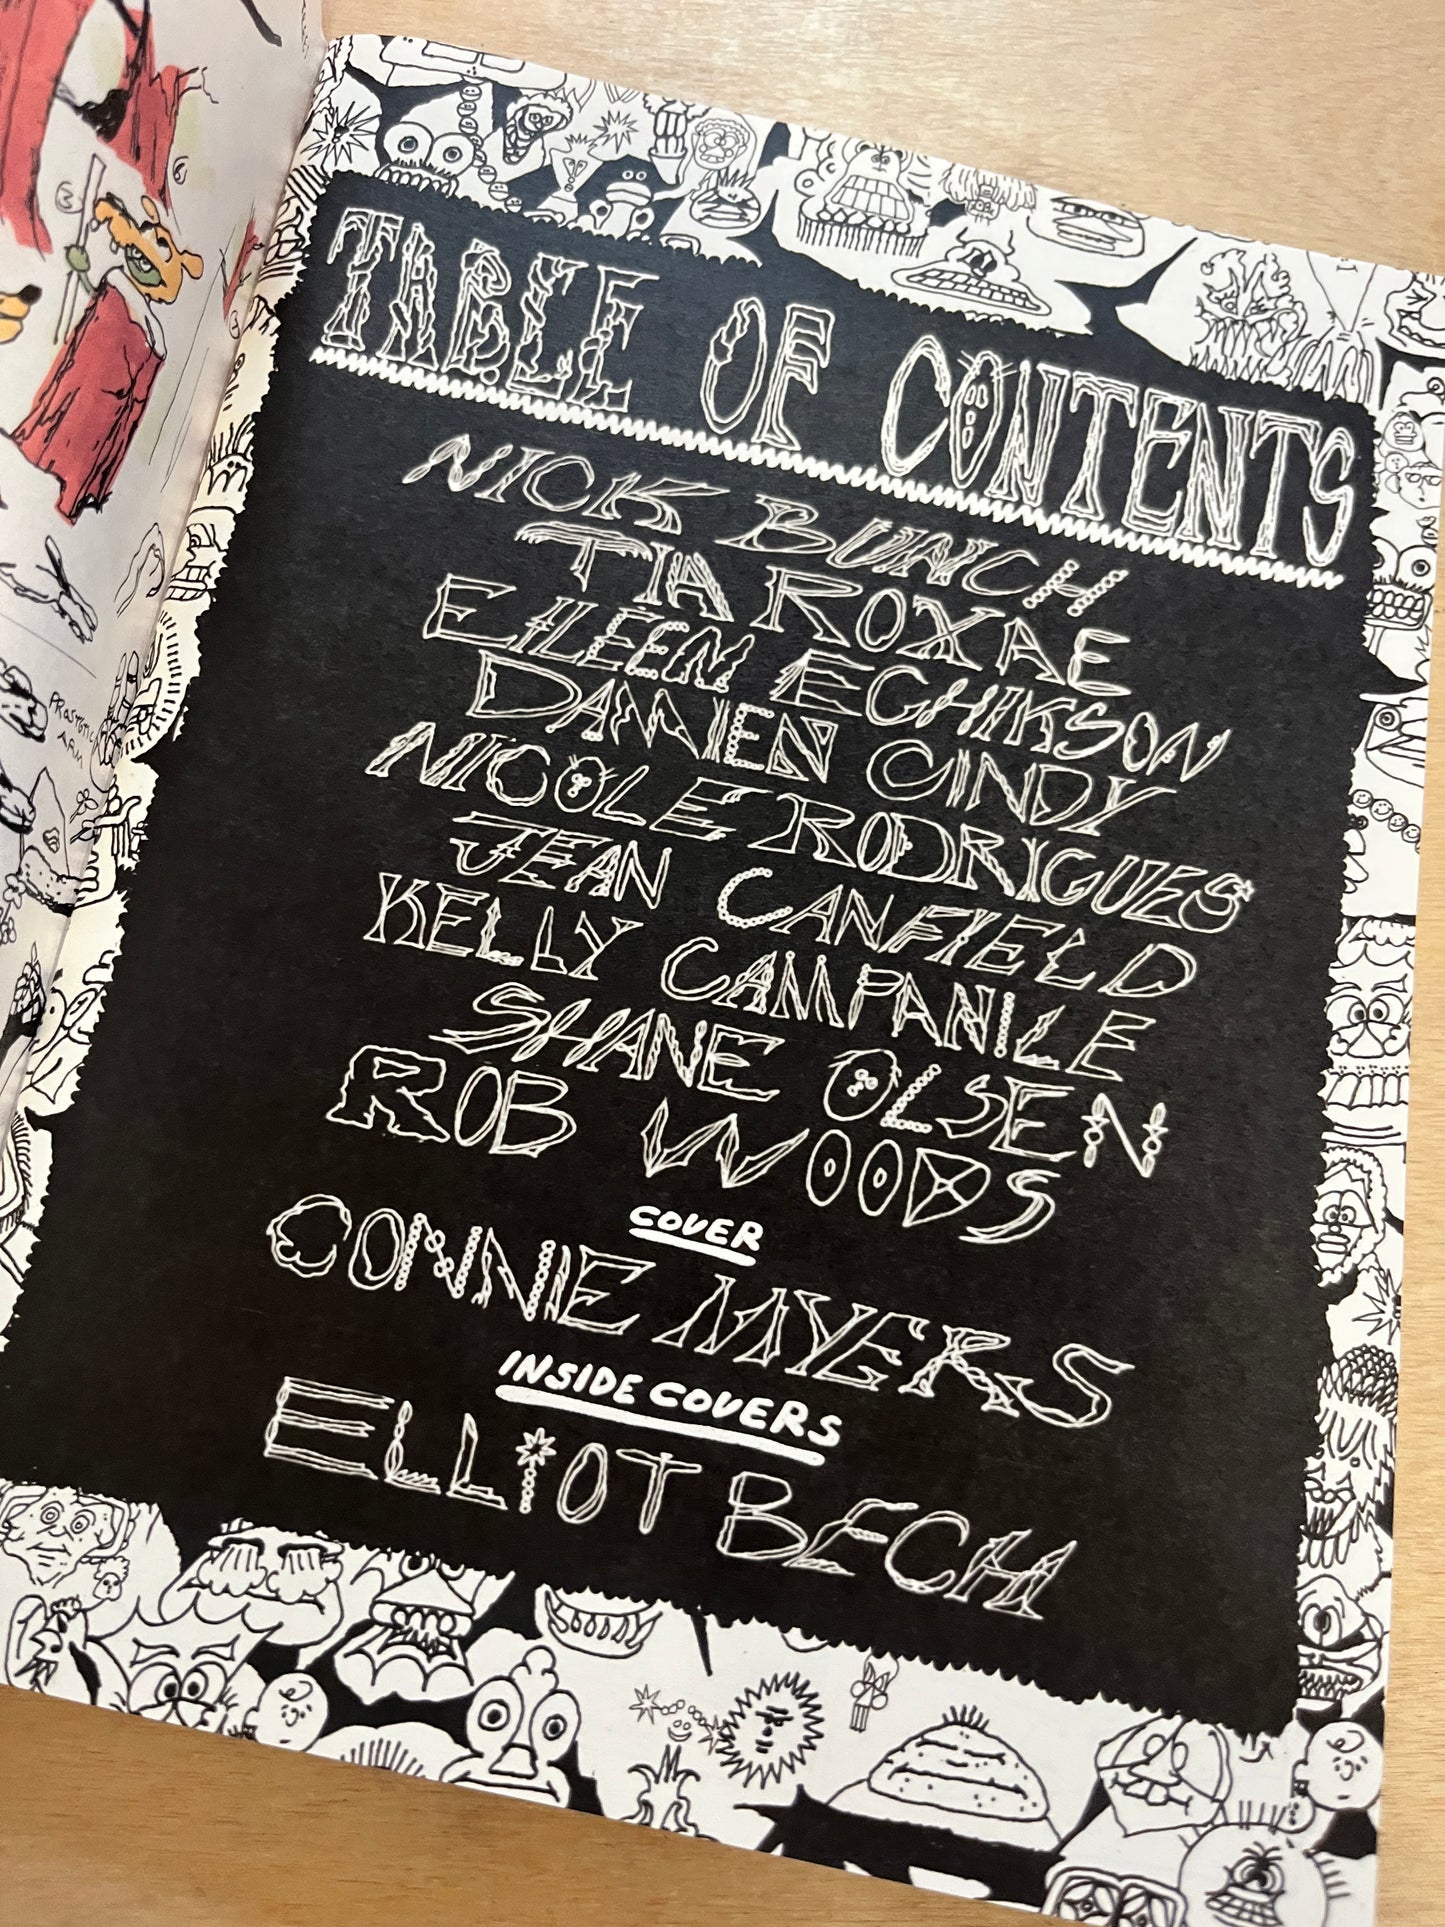 TABLE OF CONTENTS
NICK BUNCH
TIA ROXAE
EILEEN ECHIKSON
DAMIEN CINDY
NICOLE RODRIGUES
JEAN CANFIELD
KELLY CAMPANILE
SHANE OLSEN
ROB WOODS
COVER
CONNIE MYERS
INSIDE COVERS
ELLIOT BECH
PROSTHETIC
ARM
3
6
3
13